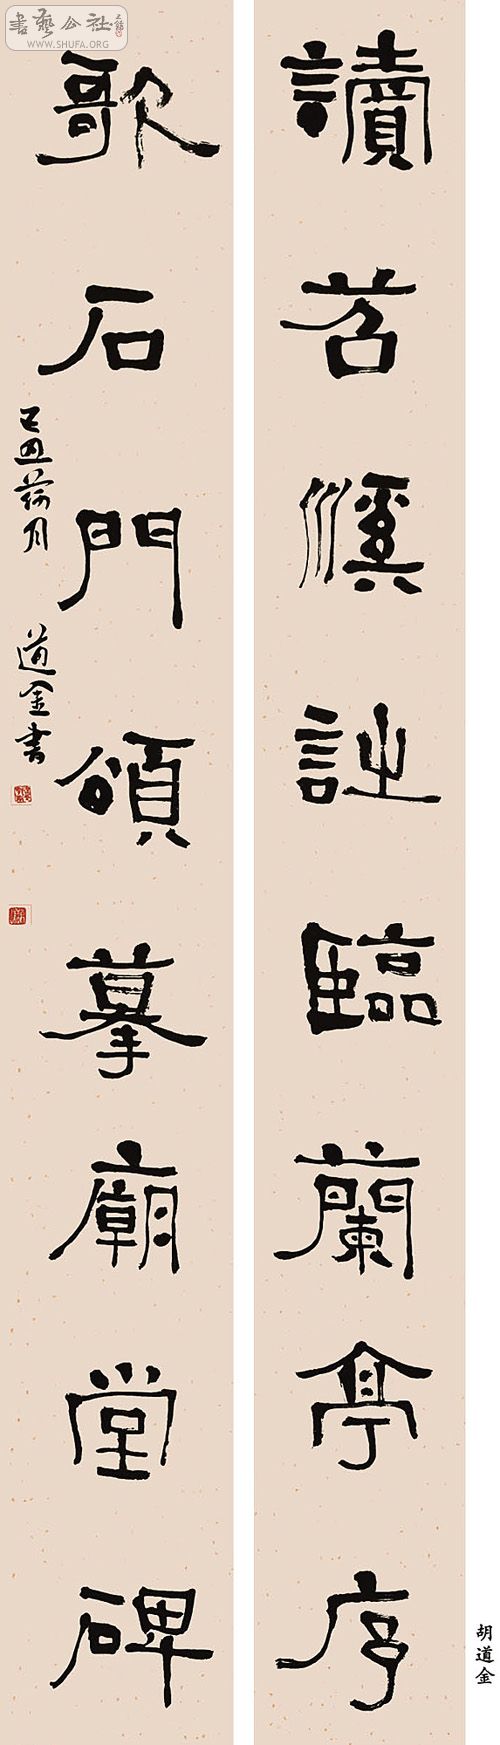 讀苕溪詩臨蘭亭序
歌石門頌摹廟堂碑
己丑荷月 道金書
胡道金
書藝公社
WWW.SHUFA.ORG